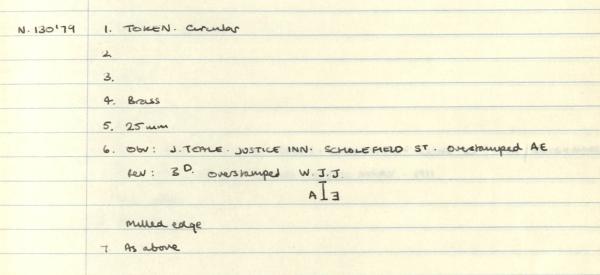 N. 130'79 1. TOKEN. Circular
2
3.
4. Brass
5. 25mm
6. Obv: J. TOALE. JUSTICE INN. SCHOLEFIELD ST. overstamped AE
rev: 3D. overstamped W. J. J.
A I 3
Milled edge
7 As above